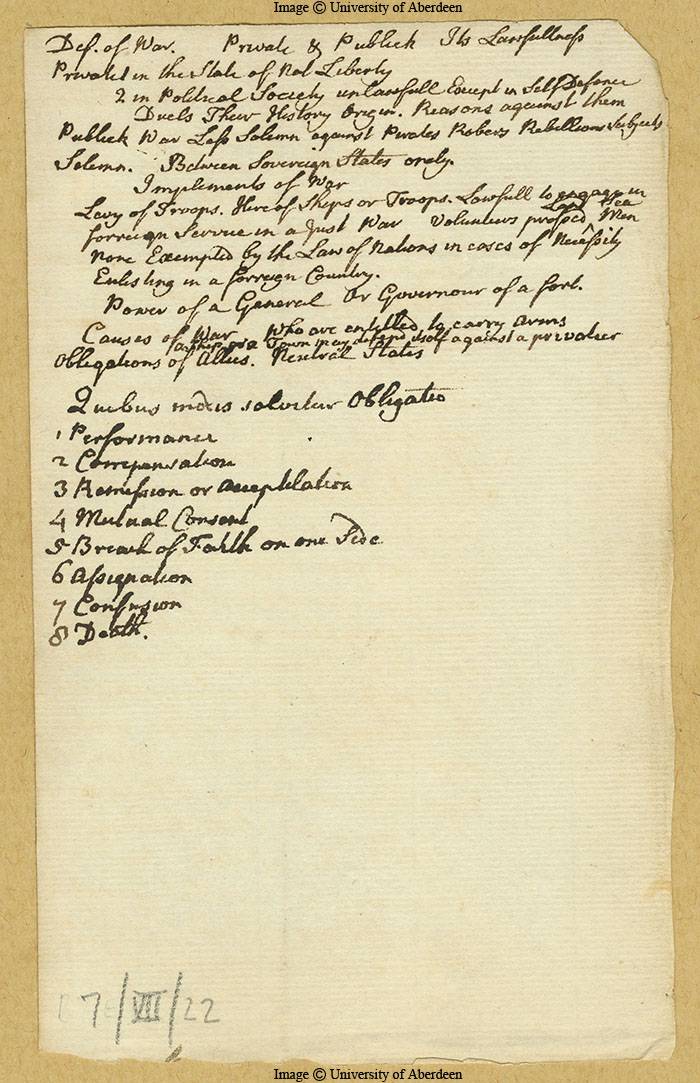 Image © University of Aberdeen
Def. of War. Private & Publick Its Lawfullness
Private 1 in the State of Nat Liberty
2 in Political Society unlawfull Except in Self Defence
Duels Their History Origin. Reasons against them
Publick War Less Solemn against Pirates Robers Rebellious Subjects
Solemn. Between Sovereign States only.
Implements of War
Levy of Troops. Hire of Ships or Troops. Lawfull to engage in
forreign Service in a Just War Volunteers pressed Land Sea Men
None Exempted by the Law of Nations in cases of Necessity
Enlisting in a forreign Country.
Power of a General Or Governour of a fort.
Causes of War Who are entitled to carry Arms
a Ship or a Town may defend itself against a privatier
Obligations of Allies. Neutral States
Quibus modis solvitur Obligatio
1 Performance
2 Compensation
3 Remission or Acceptilation
4 Mutual Consent
5 Breach of Faith on one Side
6 Assignation
7 Confusion
8 Death.
7/VII/22
Image © University of Aberdeen